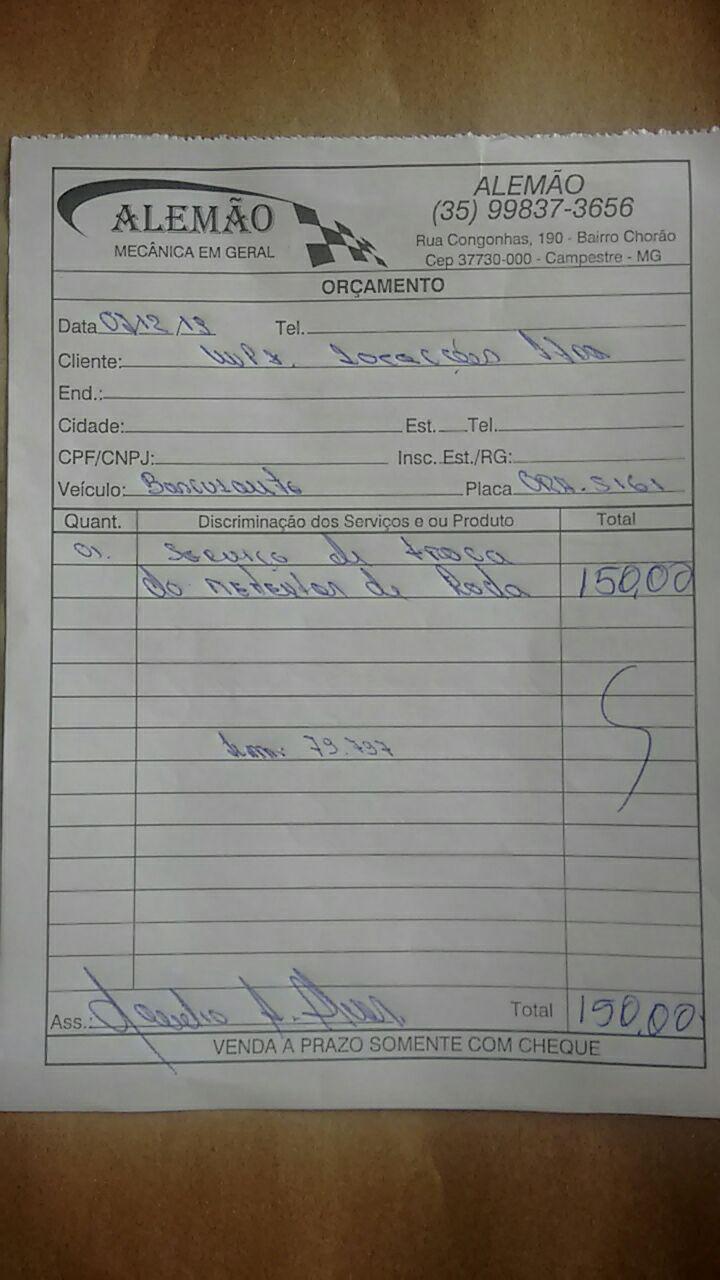 ALEMÃO
MECÂNICA EM GERAL
ALEMÃO
(35) 99837-3656
Rua Congonhas, 190 - Bairro Chorão
Cep 37730-000 - Campestre - MG
ORÇAMENTO
Data 07/12/19 Tel.
Cliente: Locações
End.:
Cidade: Est. Tel.
CPF/CNPJ: Insc. Est./RG:
Veículo: Placa
Quant. Discriminação dos Serviços e ou Produto Total
01. Serviço de troca
do de Roda 150,00
km: 79.797
Ass.: Total 150,00
VENDA A PRAZO SOMENTE COM CHEQUE